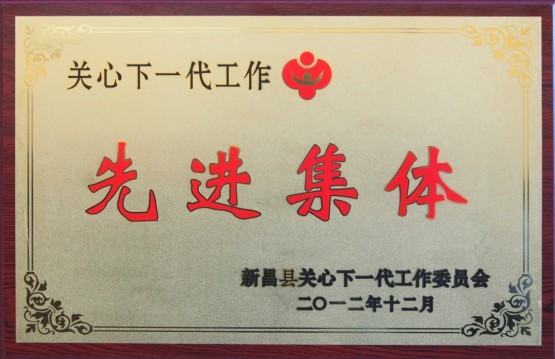 关心下一代工作
先进集体
新昌县关心下一代工作委员会
二〇一二年十二月